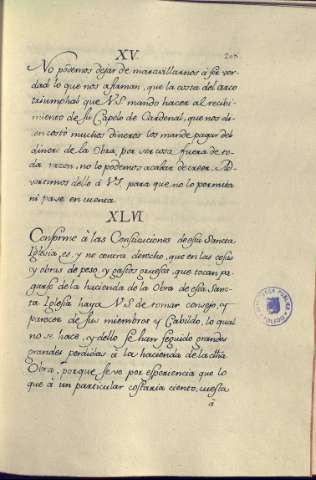 XV.
No podemos dejar de maravillarnos á ser ver-
dad lo que nos afirman, que la costa del arco
triumphal que V.S. mando hacer al recibi-
miento de su Capelo de Cardenal, que nos di-
cen costó muchos dineros los mande pagar del
dinero de la Obra, por ser cosa fuera de to-
da razon, no lo podemos acabar de creer. Ad-
vertimos dello á V.S. para que no lo permita
ni pase en cuenta.
XLVI
Conforme à las Constituciones de esta Sancta
Iglesia, es, y ne contra derecho, que en las cosas
y obras de peso, y gastos gruesos, que tocan pa-
garse de la hacienda de la Obra de esta Sanc-
ta Iglesia haya V.S. de tomar consejo, y
parecer de sus miembros y Cabildo, lo qual
no se hace, y dello se han seguido grandes
grandes perdidas à la hacienda de la dha
Obra, porque se ve por esperiencia que lo
que à un particular costaria ciento, cuesta
à